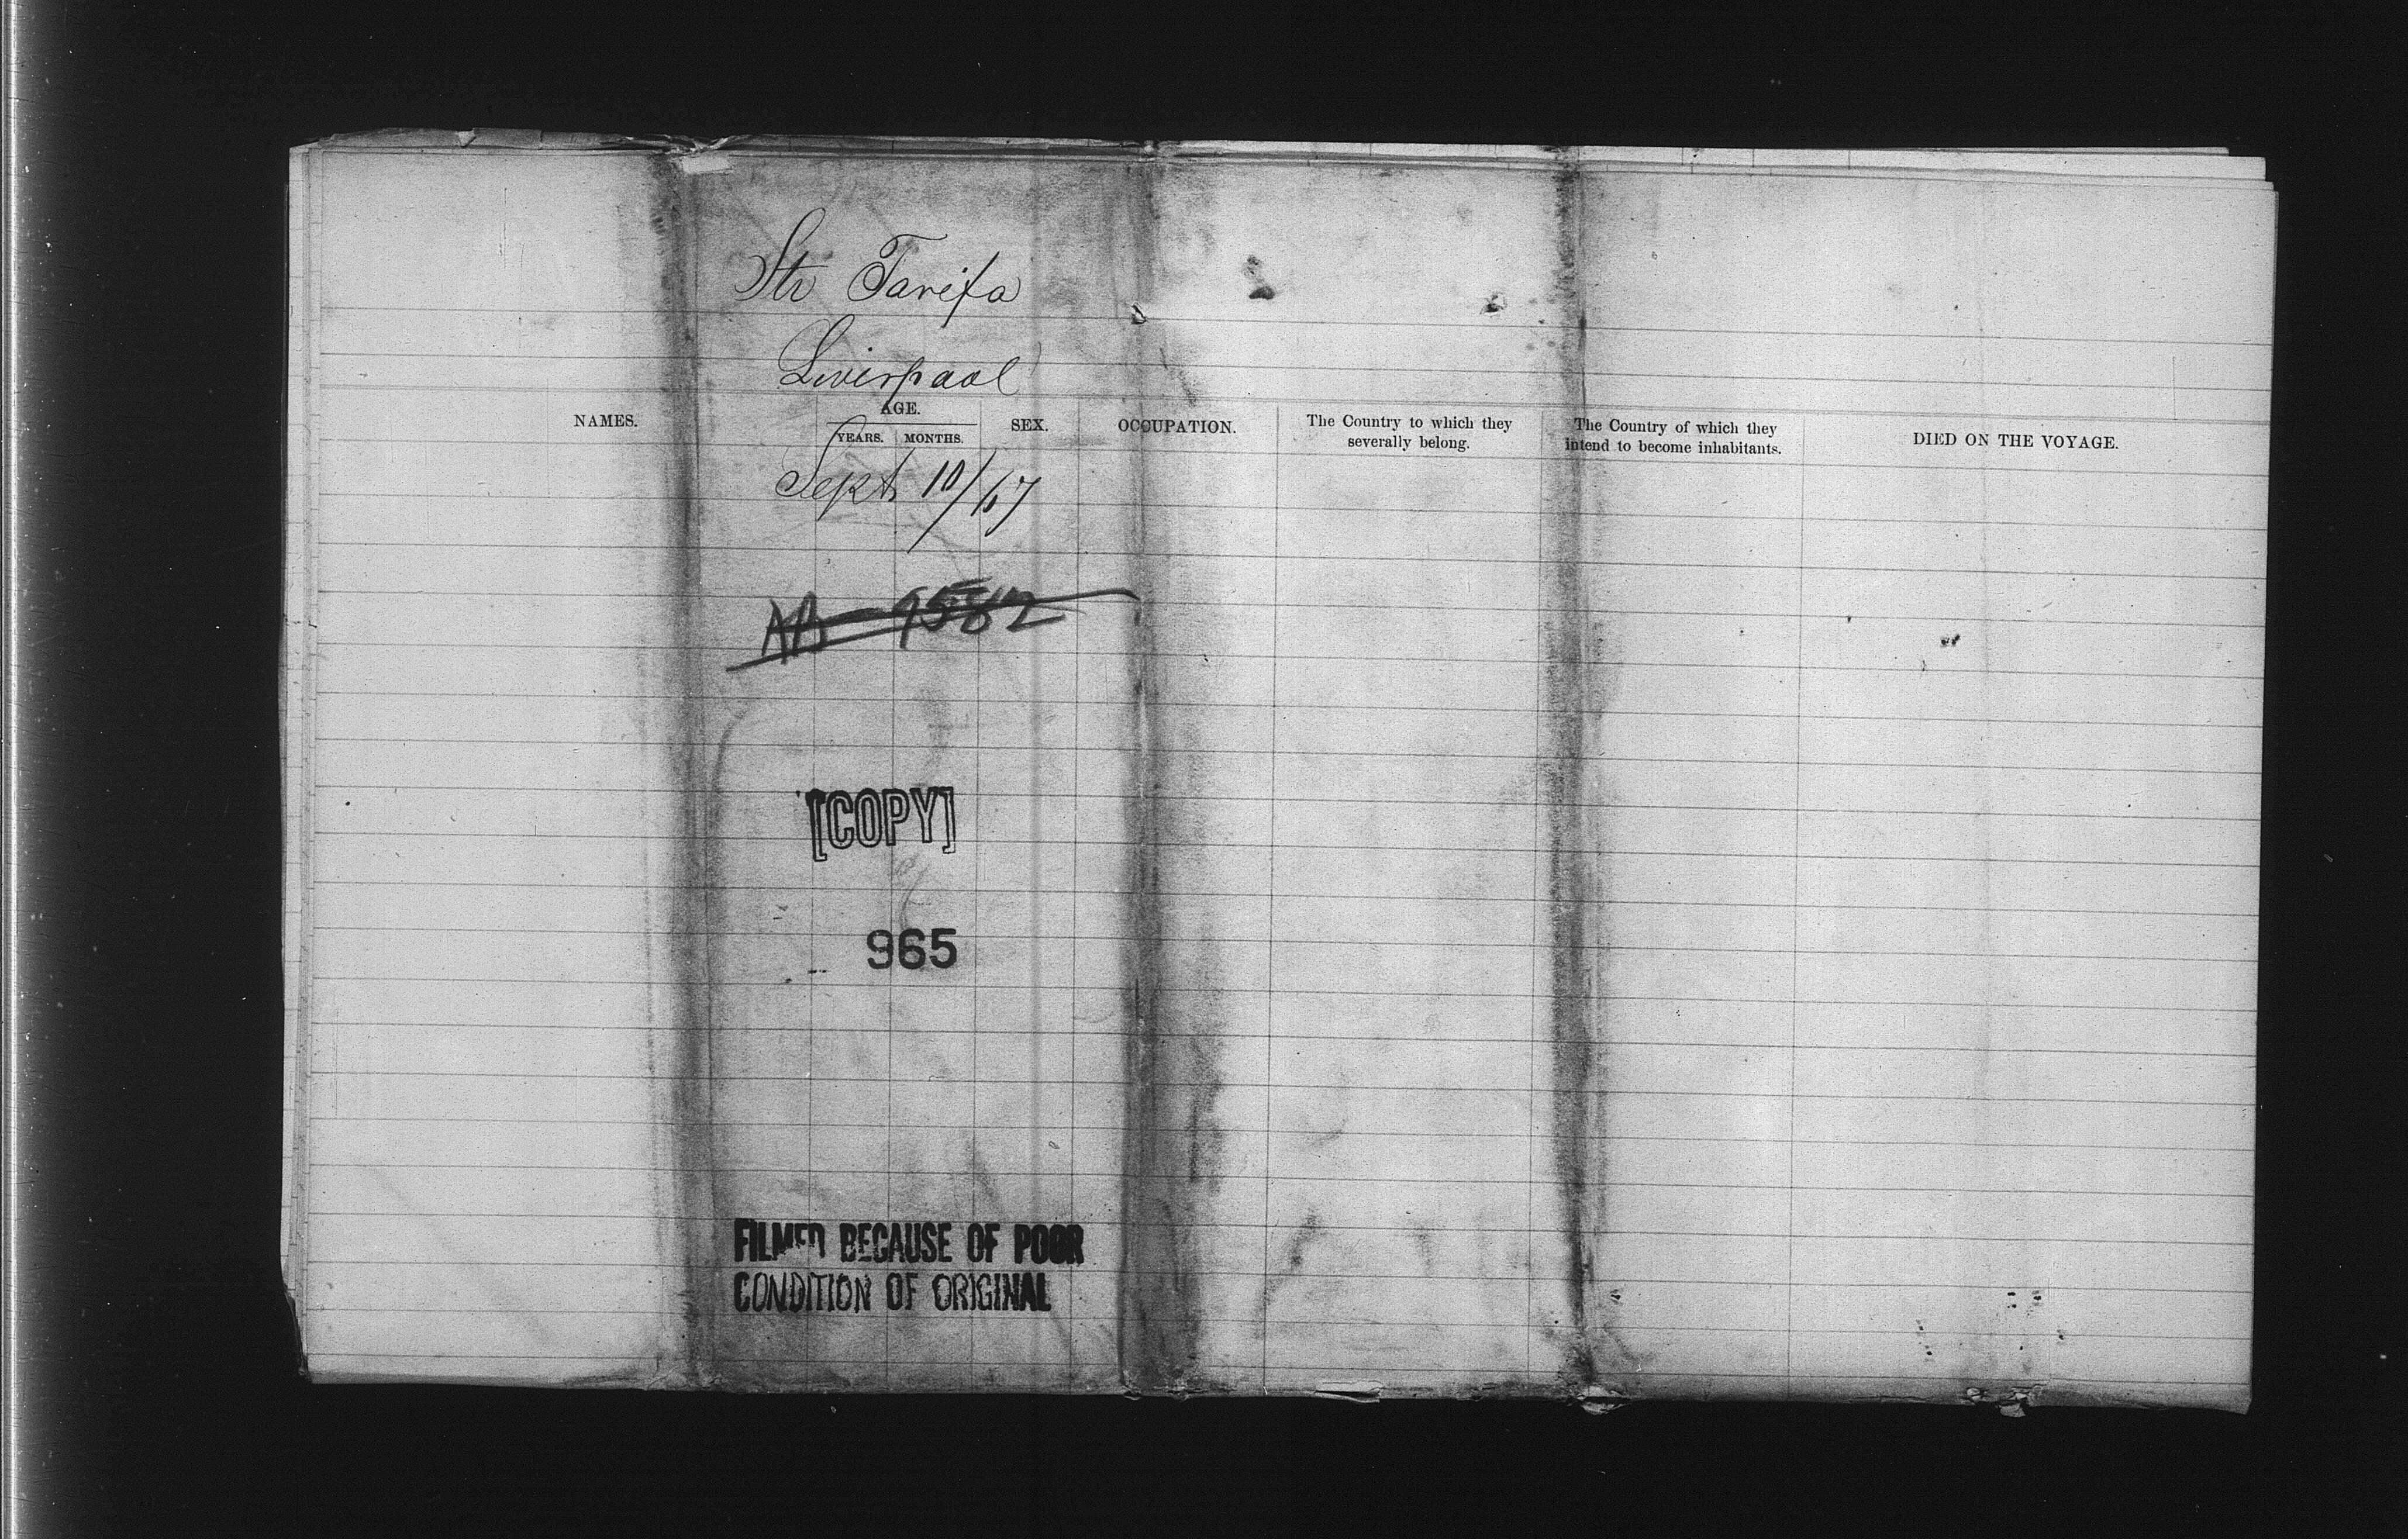 Str Tarifa
Liverpool
NAMES.
AGE.
YEARS. MONTHS.
SEX.
OCCUPATION.
The Country to which they
severally belong.
The Country of which they
intend to become inhabitants.
DIED ON THE VOYAGE.
Sept 10/67
[COPY]
965
FILMED BECAUSE OF POOR
CONDITION OF ORIGINAL